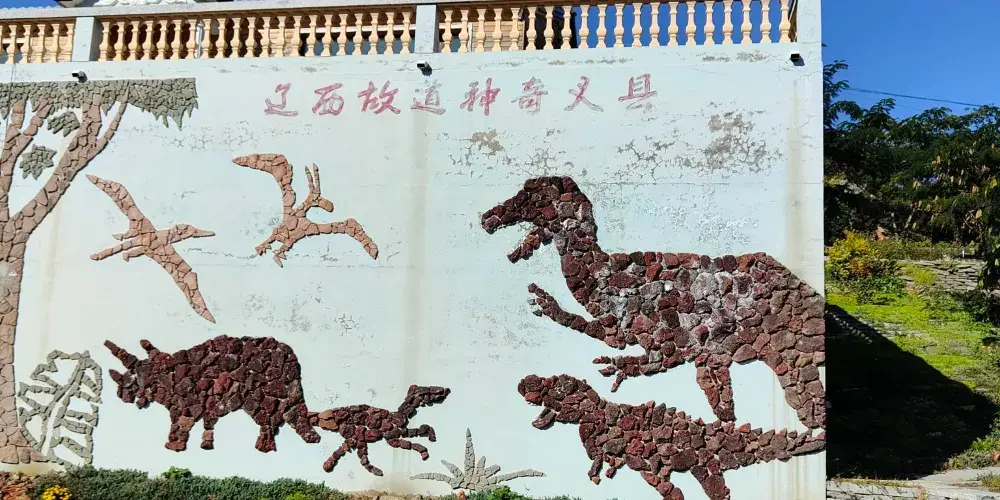 辽西故道神奇义县